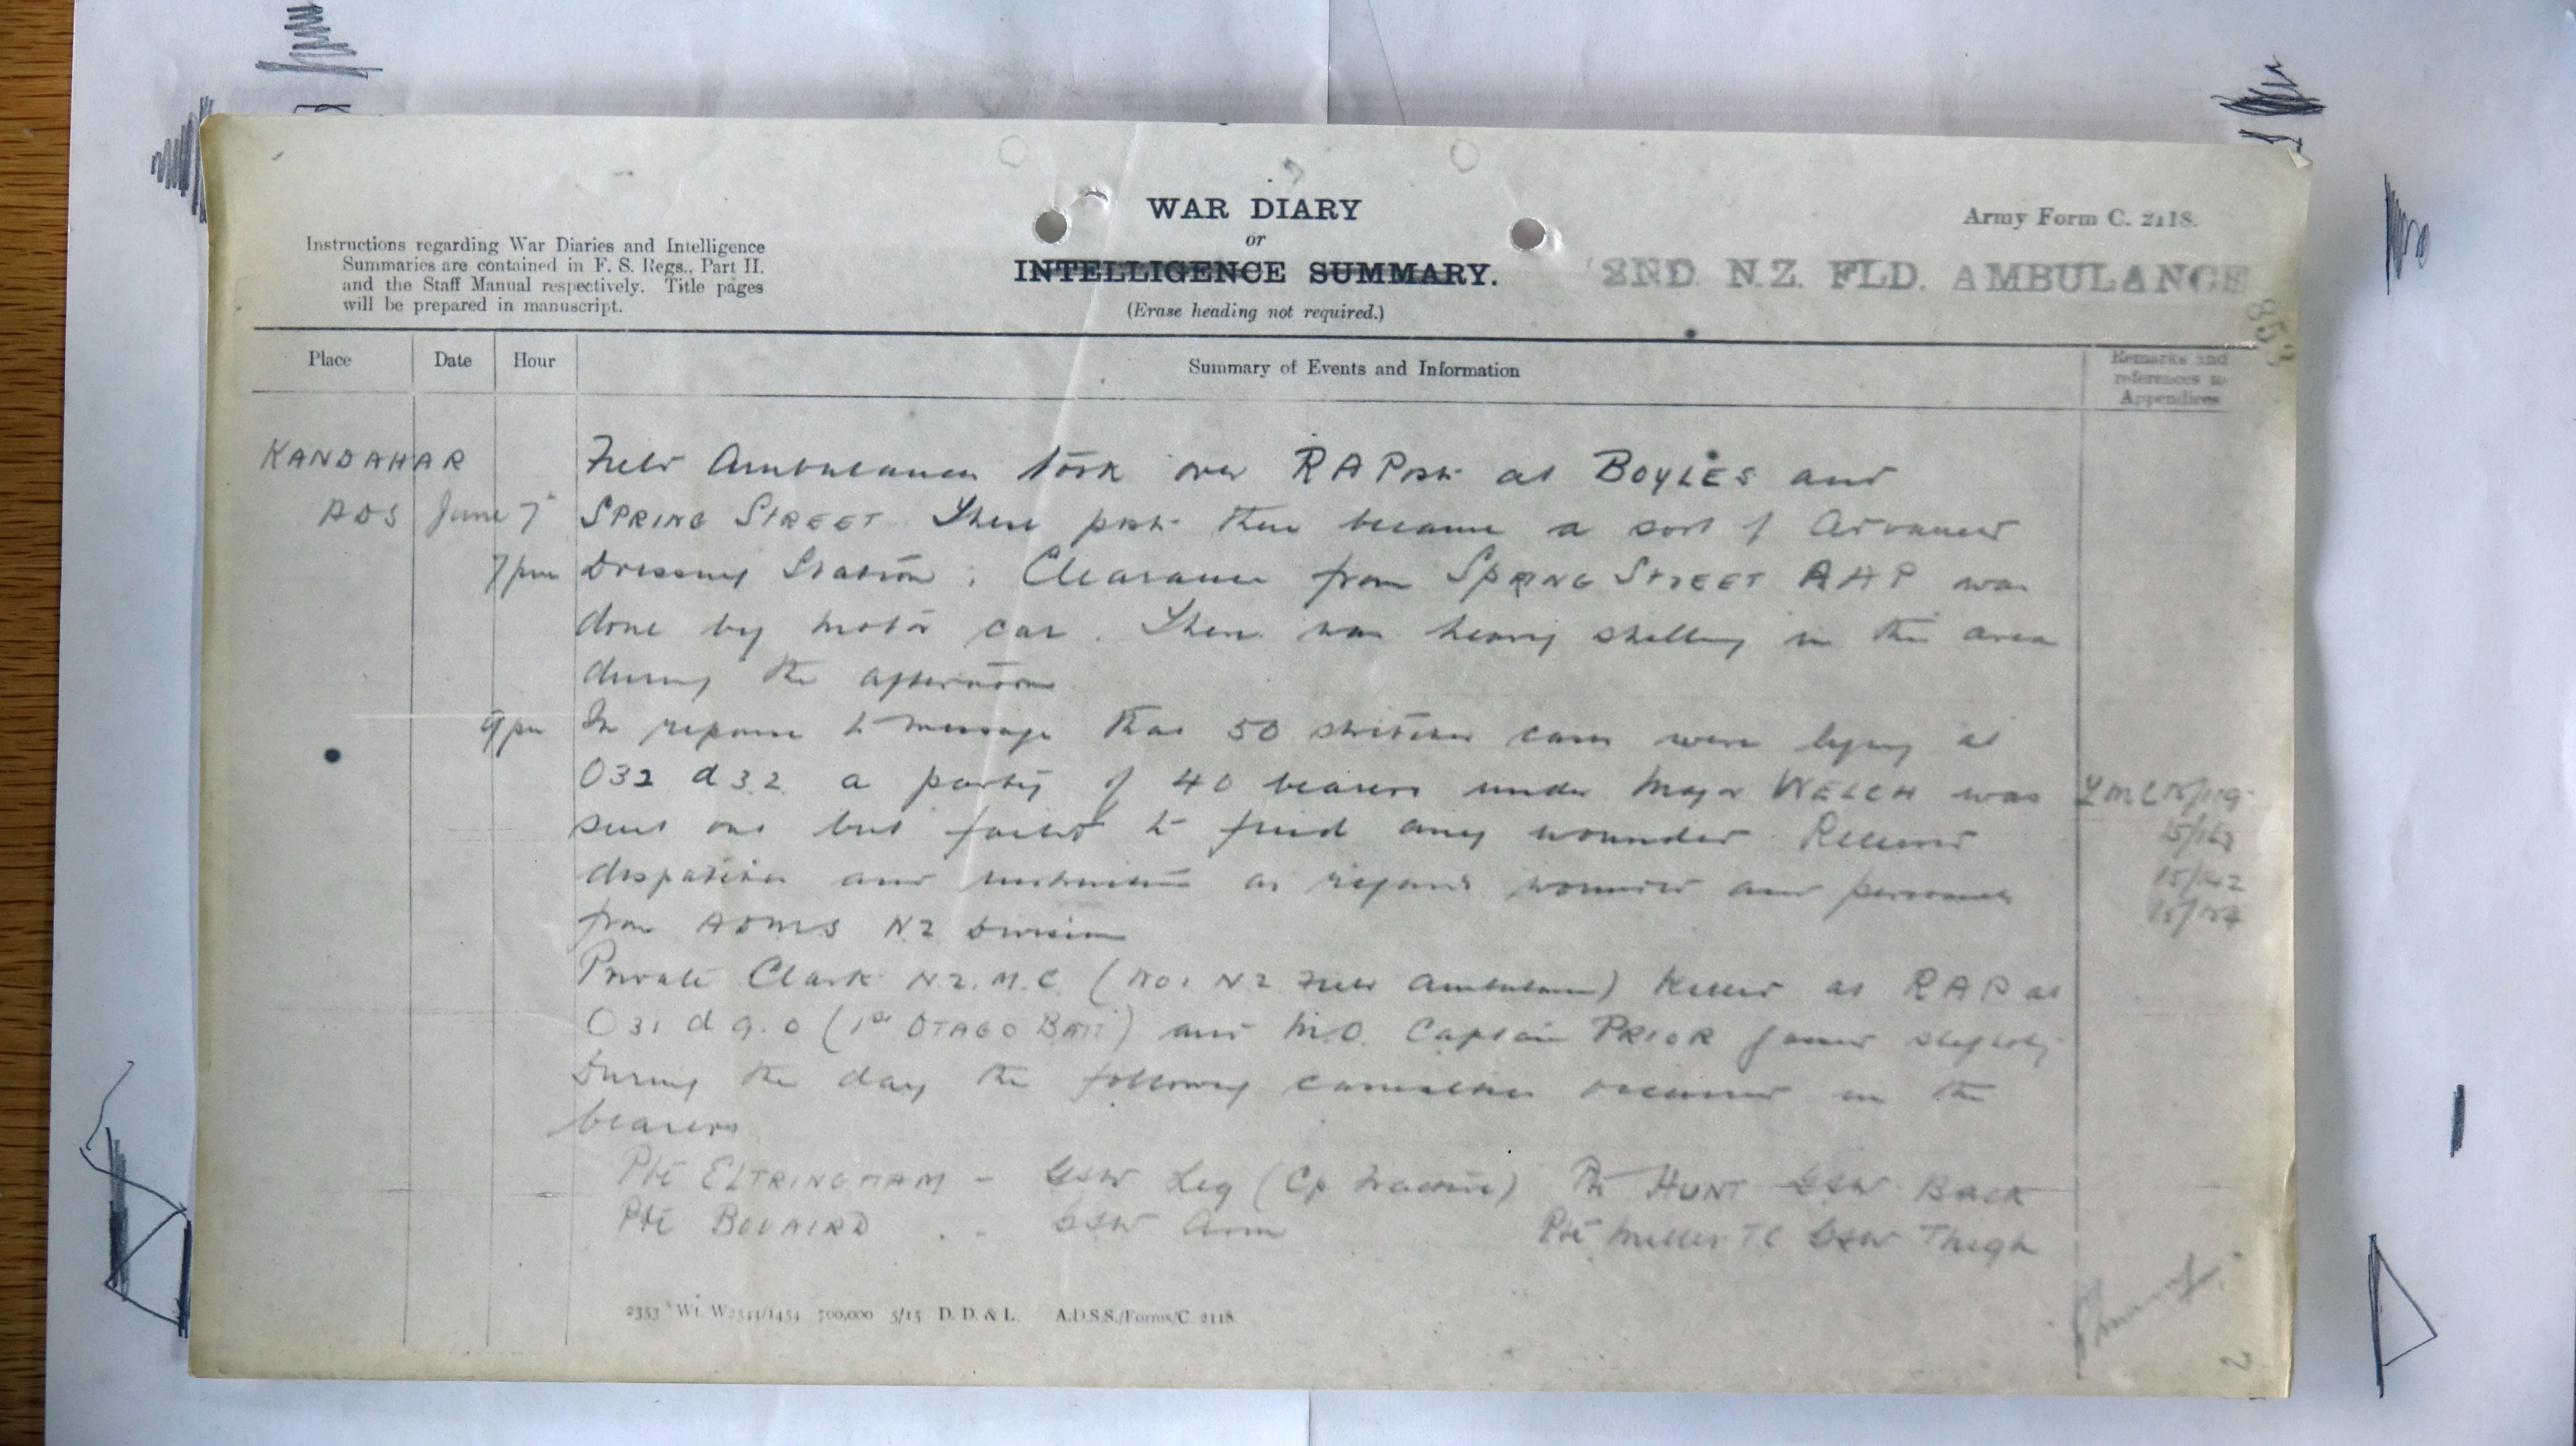 WAR DIARY
or
INTELLIGENCE SUMMARY.
(Erase heading not required.)
Army Form C. 2118.
2ND. N.Z. FLD. AMBULANCE
Instructions regarding War Diaries and Intelligence
Summaries are contained in F. S. Regs., Part II.
and the Staff Manual respectively. Title pages
will be prepared in manuscript.
Place
Date
Hour
Summary of Events and Information
Remarks and
references to
Appendices
KANDAHAR
ADS June 7
Field Ambulance took over RA Post at BOYLES and
SPRING STREET These post then became a sort of Advanced
7pm Dressing Station. Clearance from SPRING STREET RAP was
done by motor car. There was heavy shelling in the area
during the afternoon
9pm In reponse to message that 50 stretcher cases were lying at
O32 d 3.2 a party of 40 bearers under Major WELCH was
sent out but failed to find any wounded. Received
dispatches and instructions as regards wounded and personnel
from ADMS NZ Division
15/142
Private Clark N.Z.M.C. (No1 NZ Field Ambulance) killed at RAP at
O31 d 9.0 (1st OTAGO BATT) and M.O. Captain PRIOR gassed slightly
During the day the following casualties occurred in the
bearers
Pte ELTRINGHAM - GSW Leg (Cp fracture) Pte HUNT GSW BACK
Pte BOVAIRD . - GSW Arm Pte Miller TC GSW Thigh
2353 Wt. W2544/1454 700,000 5/15 D. D. & L. A.D.S.S./Forms/C. 2118.